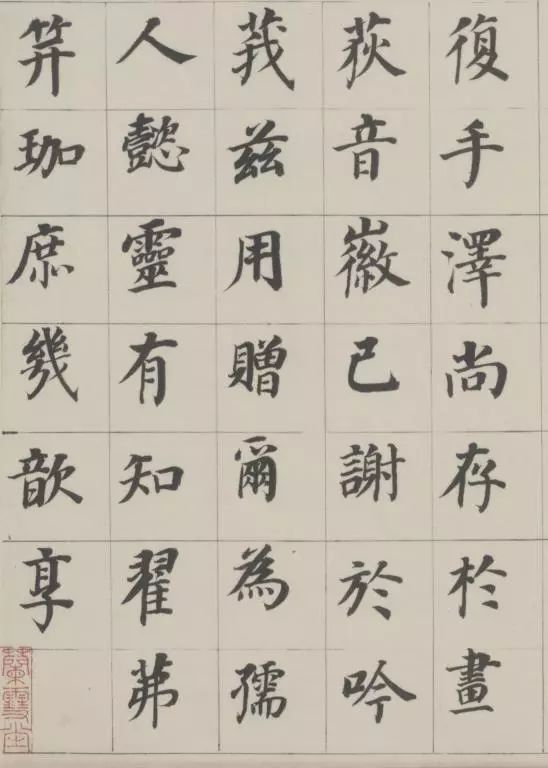 復手澤尚存於畫
荻音徽已謝於吟
莪茲用贈爾為孺
人懿靈有知翟茀
笄珈庶幾歆享